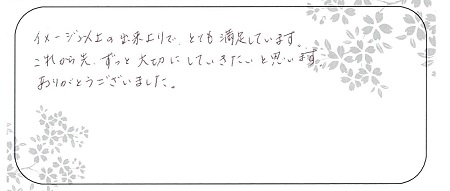 イメージ以上の出来上りで、とても満足しています。
これから先、ずっと大切にしていきたいと思います。
ありがとうございました。